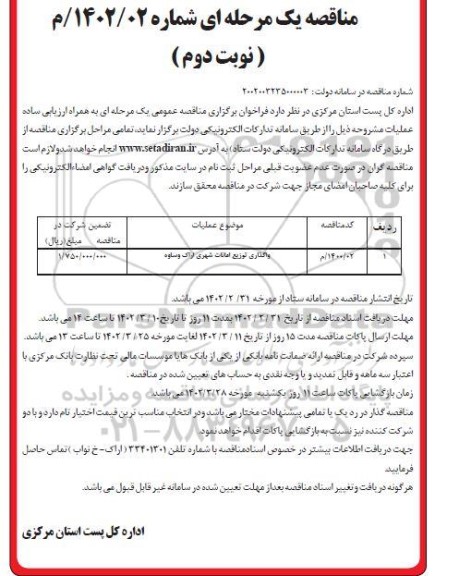 مناقصه یک مرحله ای شماره ۱۴۰۲/۰۲/م
( نوبت دوم )
شماره مناقصه در سامانه دولت : ۲۰۰۲۰۰۳۲۳۵۰۰۰۰۰۳
اداره کل پست استان مرکزی در نظر دارد فراخوان برگزاری مناقصه عمومی یک مرحله ای به همراه ارزیابی ساده
عملیات مشروحه ذیل را از طریق سامانه تدارکات الکترونیکی دولت برگزار نماید، تمامی مراحل برگزاری مناقصه از
طریق درگاه سامانه تدارکات الکترونیکی دولت ستاد) به آدرس www.setadiran.ir انجام خواهد شد و لازم است
مناقصه گران در صورت عدم عضویت قبلی مراحل ثبت نام در سایت مذکور و دریافت گواهی امضاء الکترونیکی را
برای کلیه صاحبان امضای مجاز جهت شرکت در مناقصه محقق سازند.
ردیف کدمناقصه موضوع عملیات تضمین شرکت در مناقصه مبلغ(ریال)
۱ ۱۴۰۰/۰۲/م واگذاری توزیع امانات شهری اراک وساوه ۱/۷۵۰/۰۰۰/۰۰۰
تاریخ انتشار مناقصه در سامانه ستاد از مورخه ۳۱ /۲ /۱۴۰۲ می باشد.
مهلت دریافت اسناد مناقصه از تاریخ ۳۱ /۲ /۱۴۰۲ بمدت ۱۱ روز تا تاریخ ۱۰ /۳ /۱۴۰۲ تا ساعت ۱۴ می باشد.
مهلت ارسال پاکات مناقصه مدت ۱۵ روز از تاریخ ۱۱ /۳ /۱۴۰۲ لغایت مورخه ۲۵ /۳ /۱۴۰۲ تا ساعت ۱۳ می باشد.
سپرده شرکت در مناقصه ارائه ضمانت نامه بانکی از یکی از بانک ها یا موسسات مالی تحت نظارت بانک مرکزی با
اعتبار سه ماهه و قابل تمدید و یا وجه نقدی به حساب های تعیین شده در مناقصه .
زمان بازگشایی پاکات ساعت ۱۱ روز یکشنبه مورخه ۱۴۰۲/۳/۲۸ می باشد.
مناقصه گذار در رد یک یا تمامی پیشنهادات مختار می باشد و در انتخاب مناسب ترین قیمت اختیار تام دارد و با دو
شرکت کننده نیز نسبت به بازگشایی پاکات اقدام خواهد نمود.
جهت دریافت اطلاعات بیشتر در خصوص اسناد مناقصه با شماره تلفن ۳۳۴۰۱۳۰۱ ( اراک - خ نواب ) تماس حاصل
فرمایید.
هرگونه دریافت و تغییر اسناد مناقصه بعد از مهلت تعیین شده در سامانه غیر قابل قبول می باشد.
اداره کل پست استان مرکزی